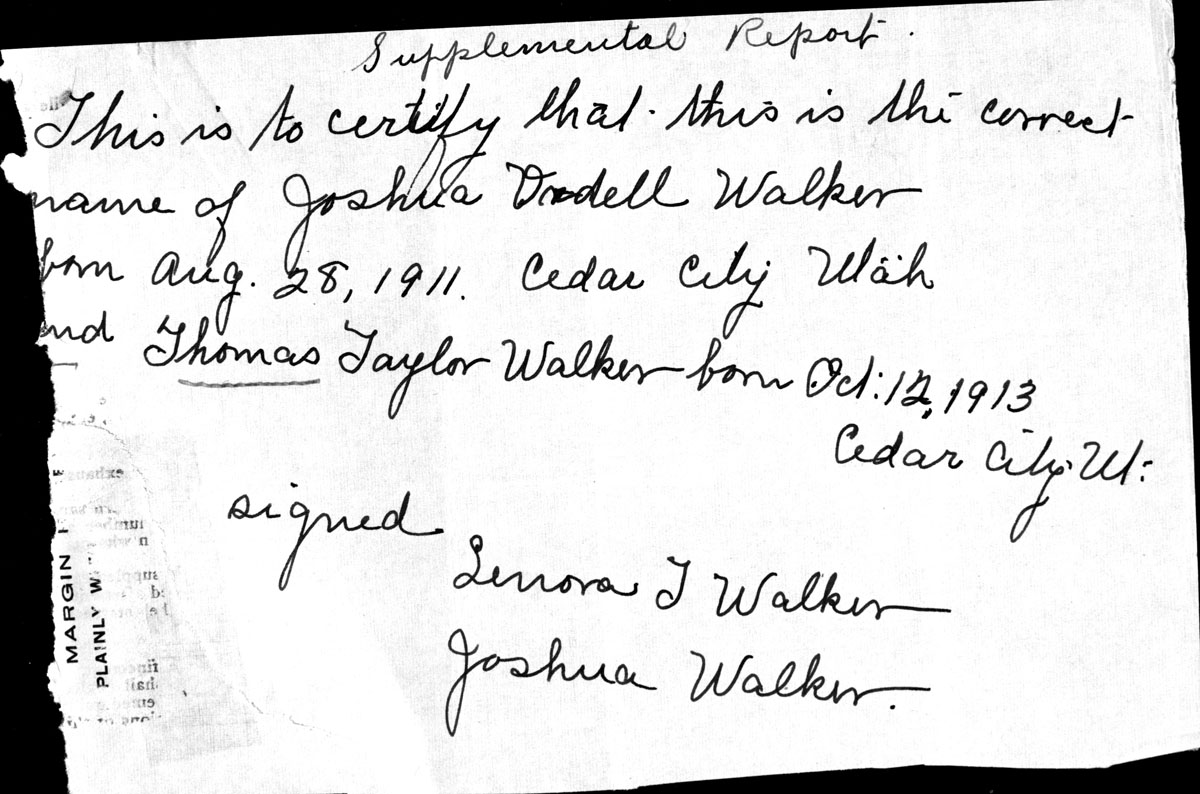 Supplemental Report.
This is to certify that this is the correct
name of Joshua Walker
born Aug. 28, 1911. Cedar City Utah
and Thomas Taylor Walker born Oct. 12, 1913
Cedar City Ut.
signed
Lenora T Walker
Joshua Walker.
MARGIN
PLAINLY W